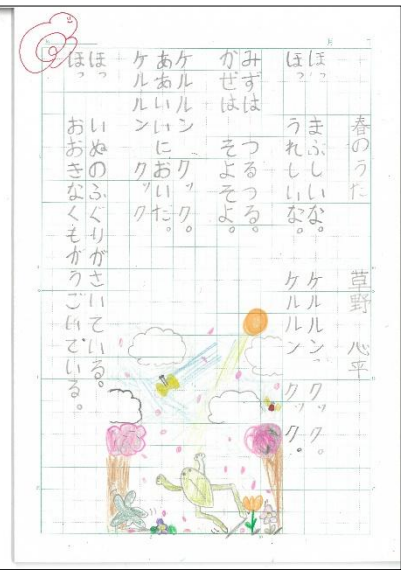 春のうた 草野 心平
ほっ まぶしいな。
ほっ うれしいな。
みずは つるつる。
かぜは そよそよ。
ケルルン クック。
ああいいにおいだ。
ケルルン クック
ほっ いぬのふぐりがさいている。
ほっ おおきなくもがうごいている。
ケルルン クック。
ケルルン クック。